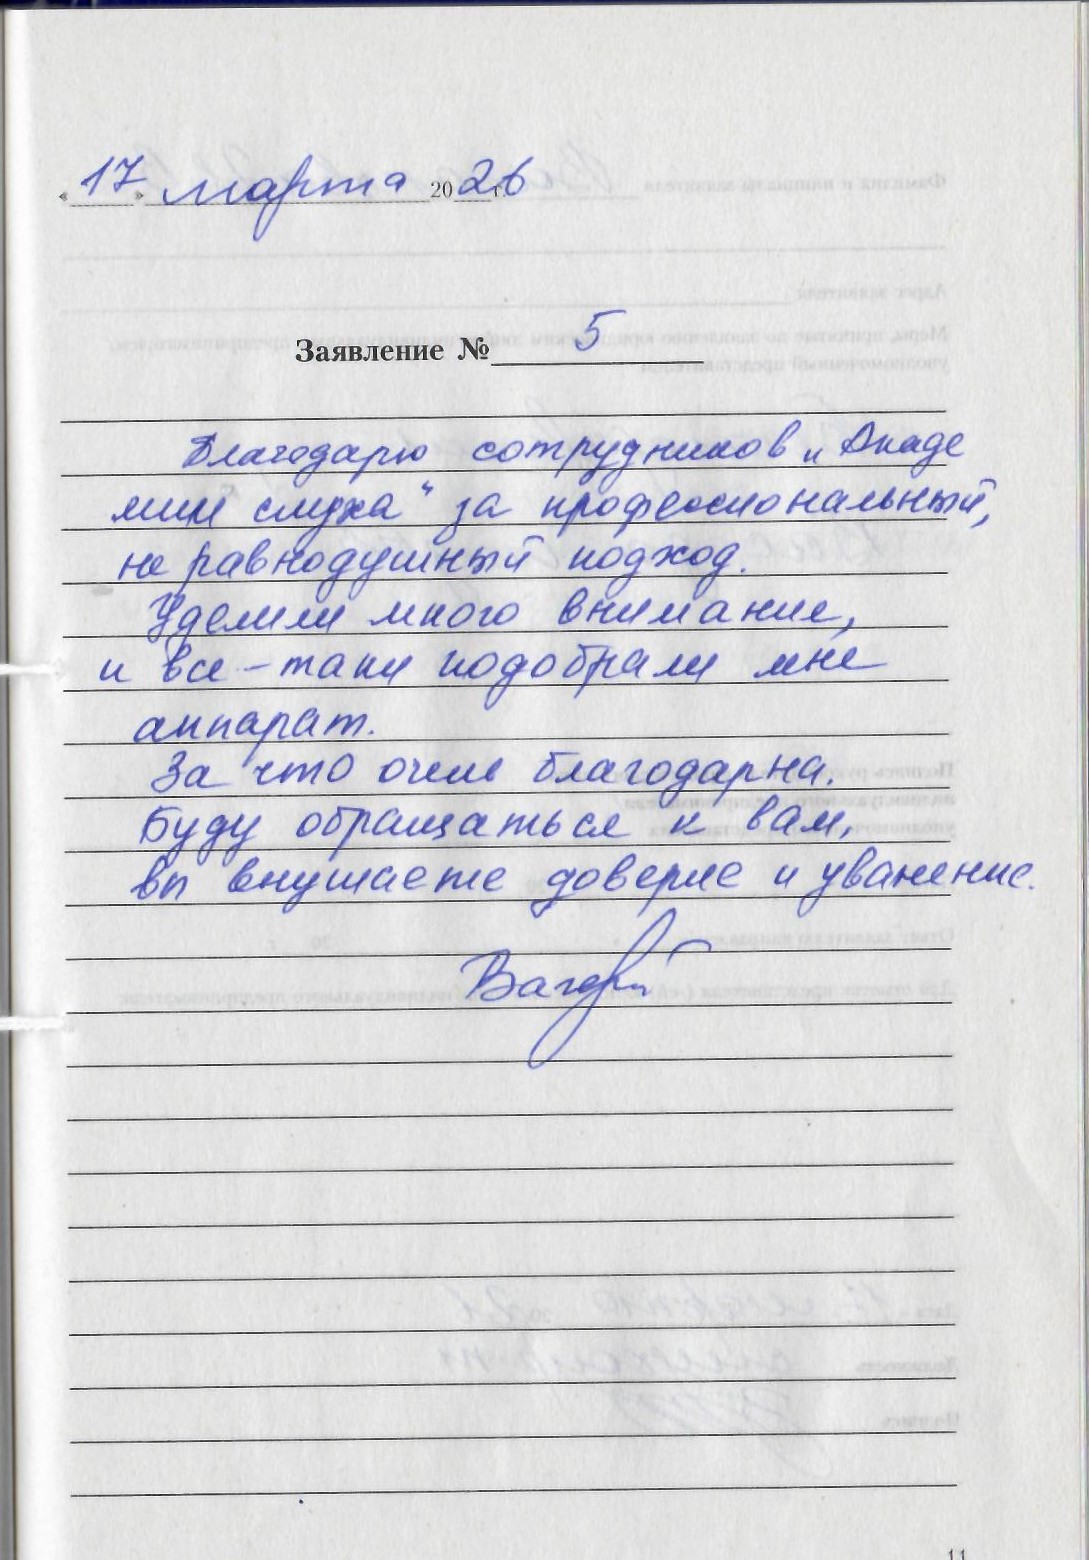 « 17 » марта 2026 г.
Заявление № 5
Благодарю сотрудников „Акаде
мии слуха“ за профессиональный,
не равнодушный подход.
Уделили много внимание,
и все-таки подобрали мне
аппарат.
За что очень благодарна.
Буду обращаться к вам,
вы внушаете доверие и уважение.
11